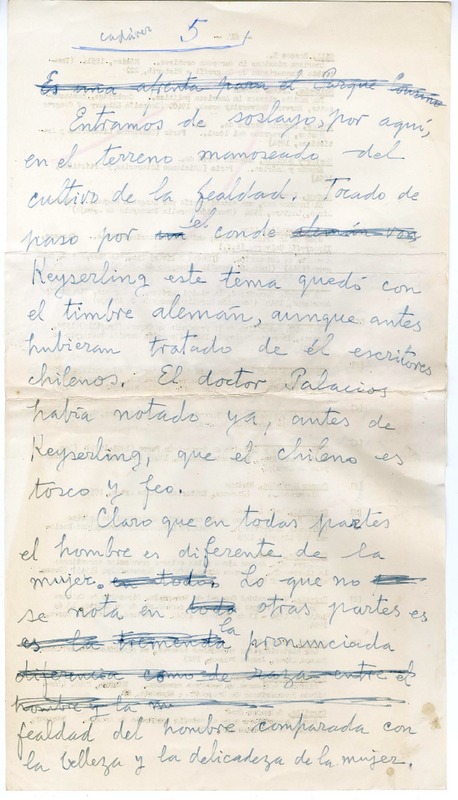 cadáver 5
Es una afrenta para el Parque Cousiño
Entramos de soslayo, por aquí,
en el terreno manoseado del
cultivo de la fealdad. Tocado de
paso por un el conde alemán von
Keyserling este tema quedó con
el timbre alemán, aunque antes
hubieran tratado de él escritores
chilenos. El doctor Palacios
había notado ya, antes de
Keyserling, que el chileno es
tosco y feo.
Claro que en todas partes
el hombre es diferente de la
mujer. en todas Lo que no
se nota en toda otras partes es
es la tremenda la pronunciada
diferencia como de raza entre el
hombre y la m
fealdad del hombre comparada con
la belleza y la delicadeza de la mujer.